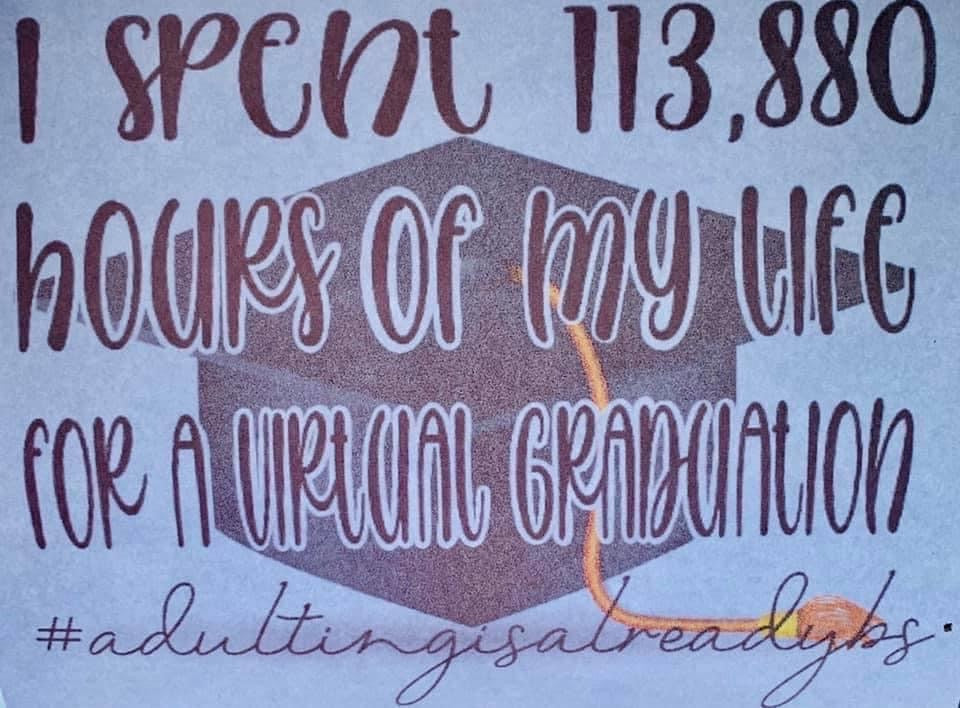 I SPENT 113,880
HOURS OF MY LIFE
FOR A VIRTUAL GRADUATION
#adultingisalreadybs